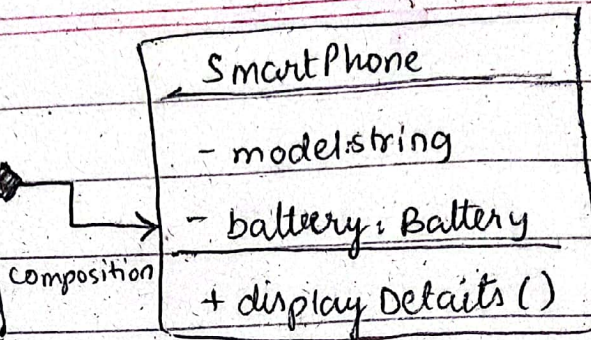 SmartPhone
- model:string
- battery: Battery
composition
+ display Details ()